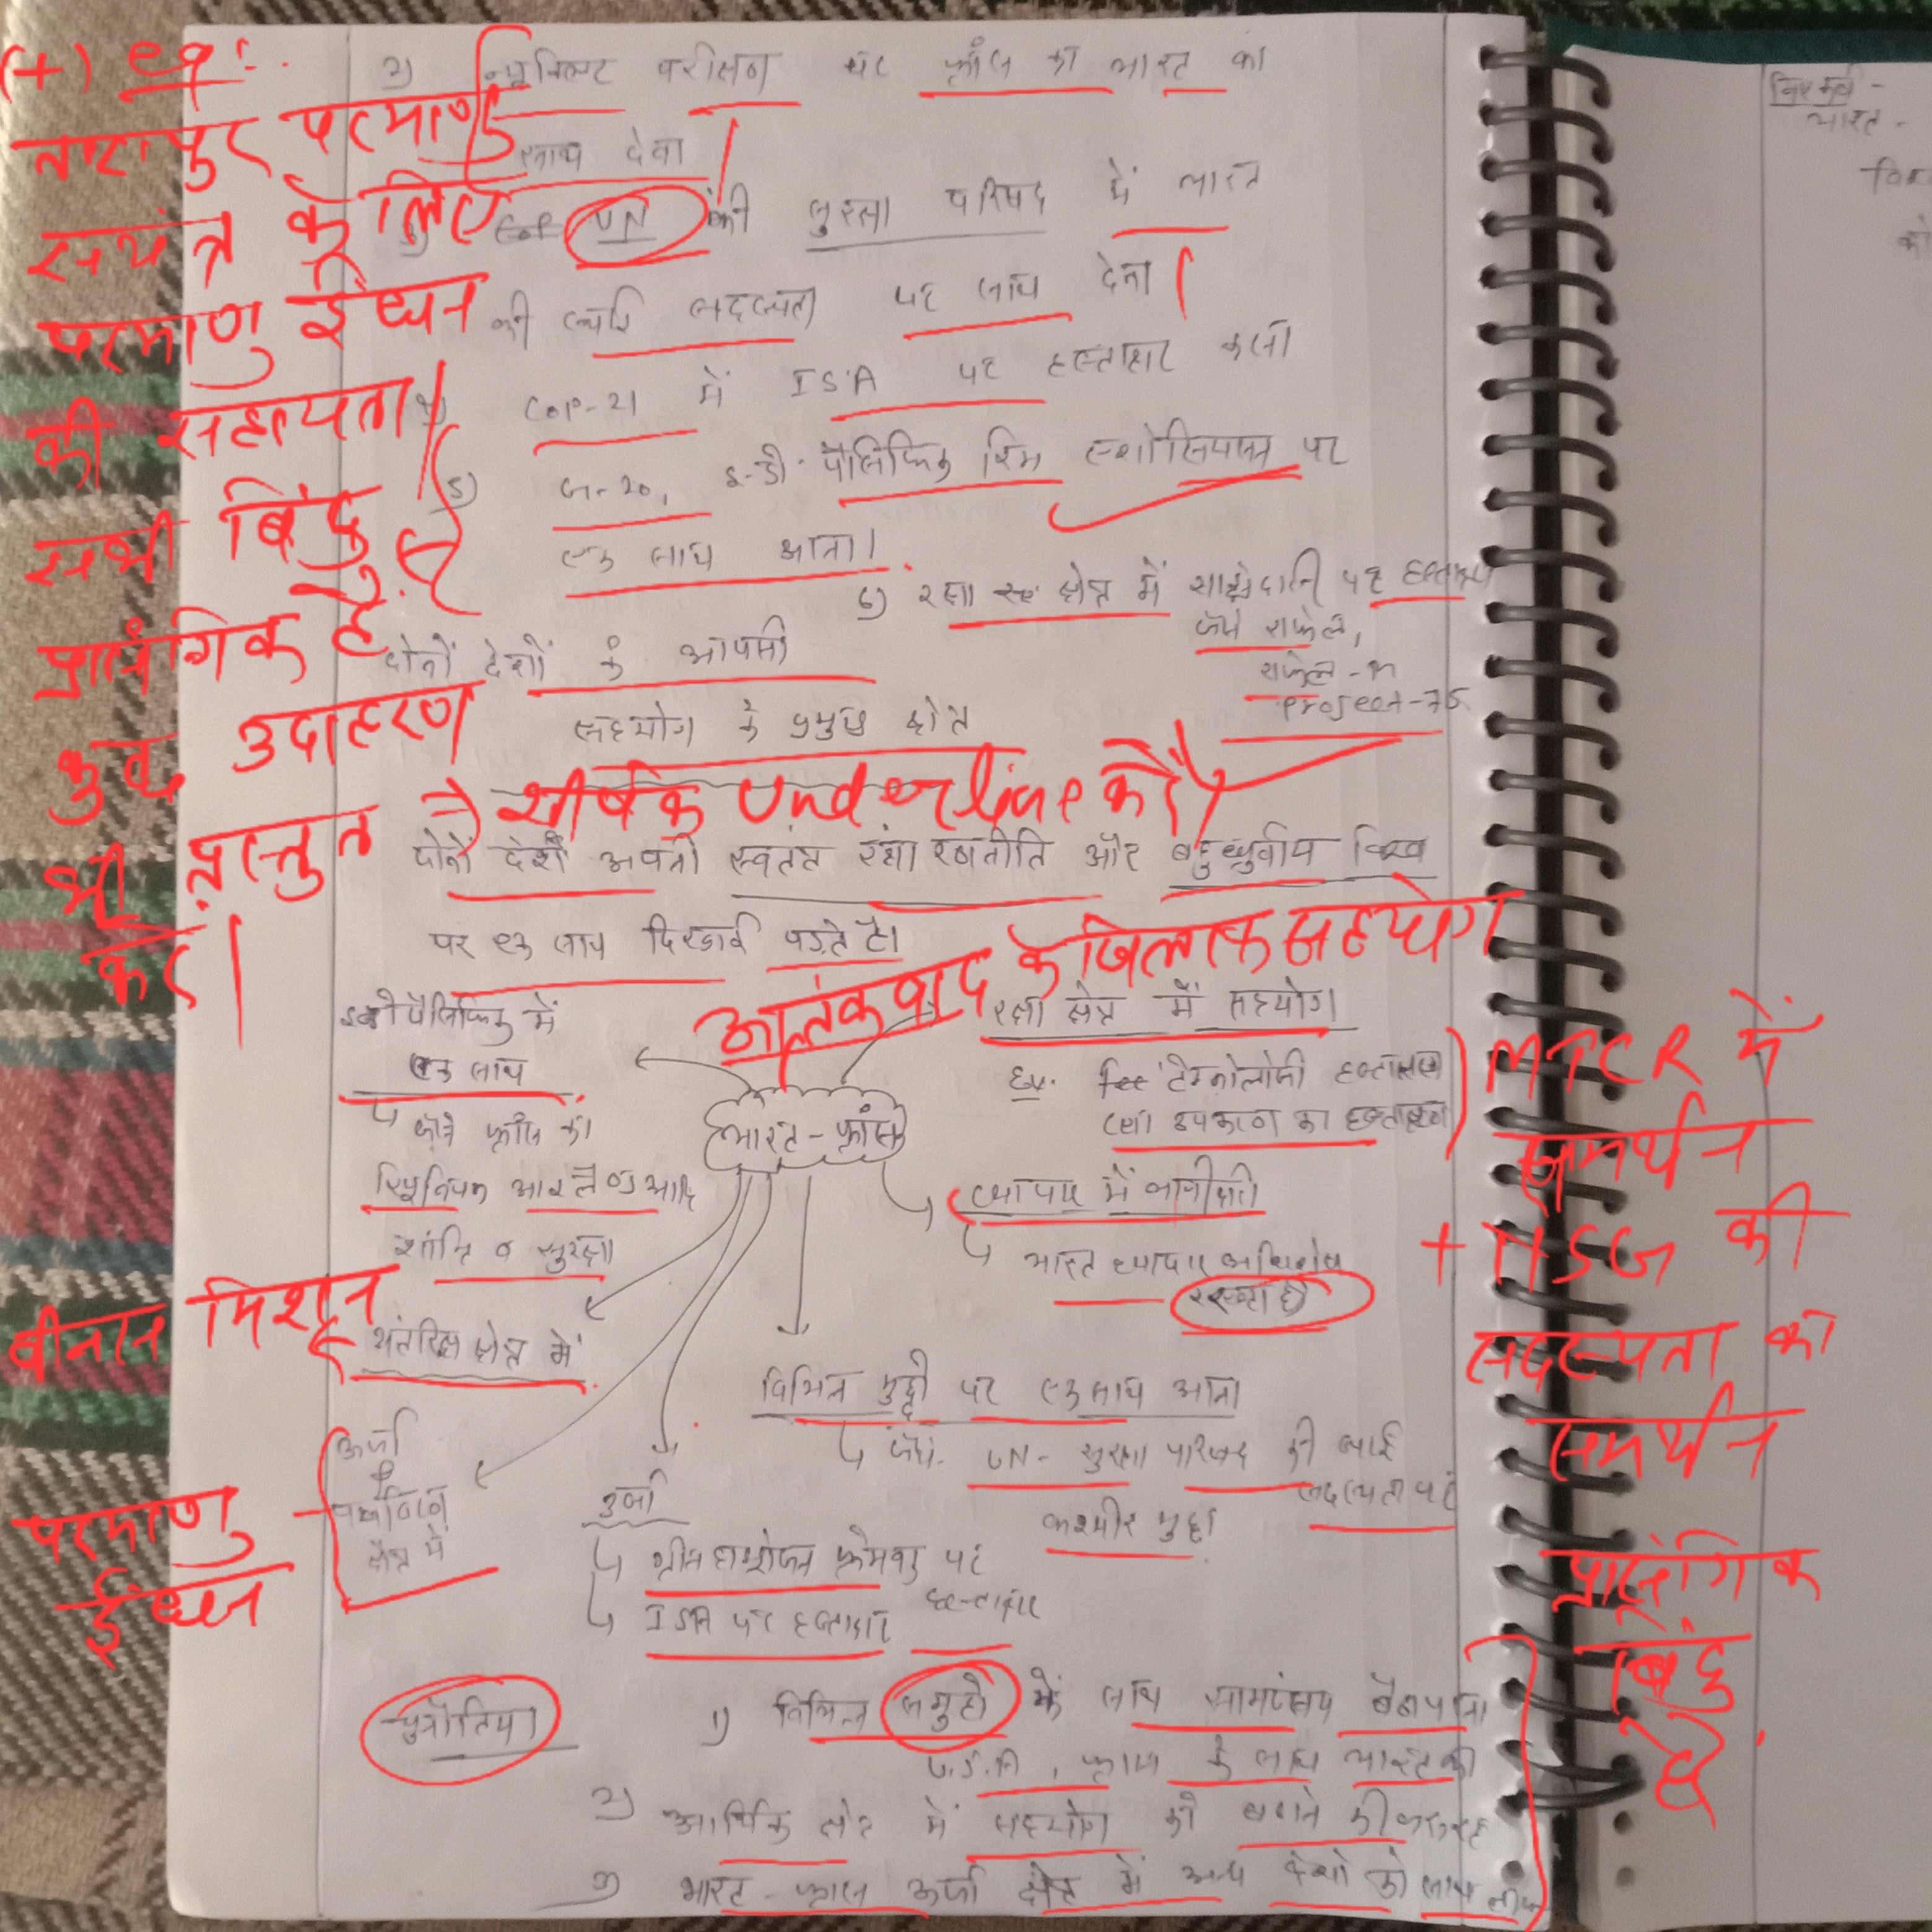 2) न्यूक्लियर परीक्षण पर फ्रांस का भारत का
साथ देना
3) UN की सुरक्षा परिषद में भारत
की स्थाई सदस्यता पर साथ देना
4) COP-21 में ISA पर हस्ताक्षर करना
5) G-20, इ-डो-पैसिफिक रिम एसोसिएशन पर
एक साथ आना।
6) रक्षा क्षेत्र में साझेदारी पर हस्ताक्षर
जैसे राफेल,
राफेल-M
Project-75
दोनों देशों के आपसी
सहयोग के प्रमुख क्षेत्र
दोनों देशों अपनी स्वतंत्र रक्षा रणनीति और बहुध्रुवीय विश्व
पर एक साथ दिखाई पड़ते है।
भारत-फ्रांस
इंडो पैसिफिक में
एक साथ
जैसे फ्रांस का
रियूनियन आइलैण्ड आदि
शांति व सुरक्षा
अंतरिक्ष क्षेत्र में
ऊर्जा
क्षेत्र में
रक्षा क्षेत्र में सहयोग
Ex. टेक्नोलोजी हस्तांतरण
रक्षा उपकरण का हस्तांतरण
व्यापार में भागीदारी
भारत व्यापार अधिशेष
रखता है
विभिन्न मुद्दो पर एक साथ आना
जैसे- UN- सुरक्षा परिषद की स्थाई
सदस्यता पर
कश्मीर मुद्दा
उर्जा
ग्रीन हाइड्रोजन फ्रेमवर्क पर
हस्ताक्षर
ISA पर हस्ताक्षर
चुनौतिया
1) विभिन्न समूहो के साथ सामंजस्य बैठा पाना
U.S.A, फ्रांस के साथ भारत का
2) आर्थिक क्षेत्र में सहयोग को बढाने की जरूरत
3) भारत-फ्रांस ऊर्जा क्षेत्र में अन्य देशो को साथ लाना
(+) eg:
तारापुर परमाणु
सयंत्र के लिए
परमाणु ईंधन
की सहायता
सभी बिंदु
प्रासंगिक है
कुछ उदाहरण
भी प्रस्तुत
करें।
→ शीर्षक Underline करें।
आतंकवाद के खिलाफ सहयोग
MTCR में
समर्थन
+ NSG की
सदस्यता का
समर्थन
प्रासंगिक
बिंदु
है.
मिशन
परमाणु
ईंधन
निष्कर्ष -
भारत -